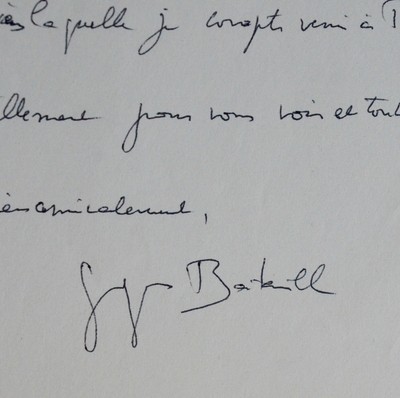 laquelle je compte venir à P
llement pour vous voir et tout
ien amicalement,
Georges Bataille